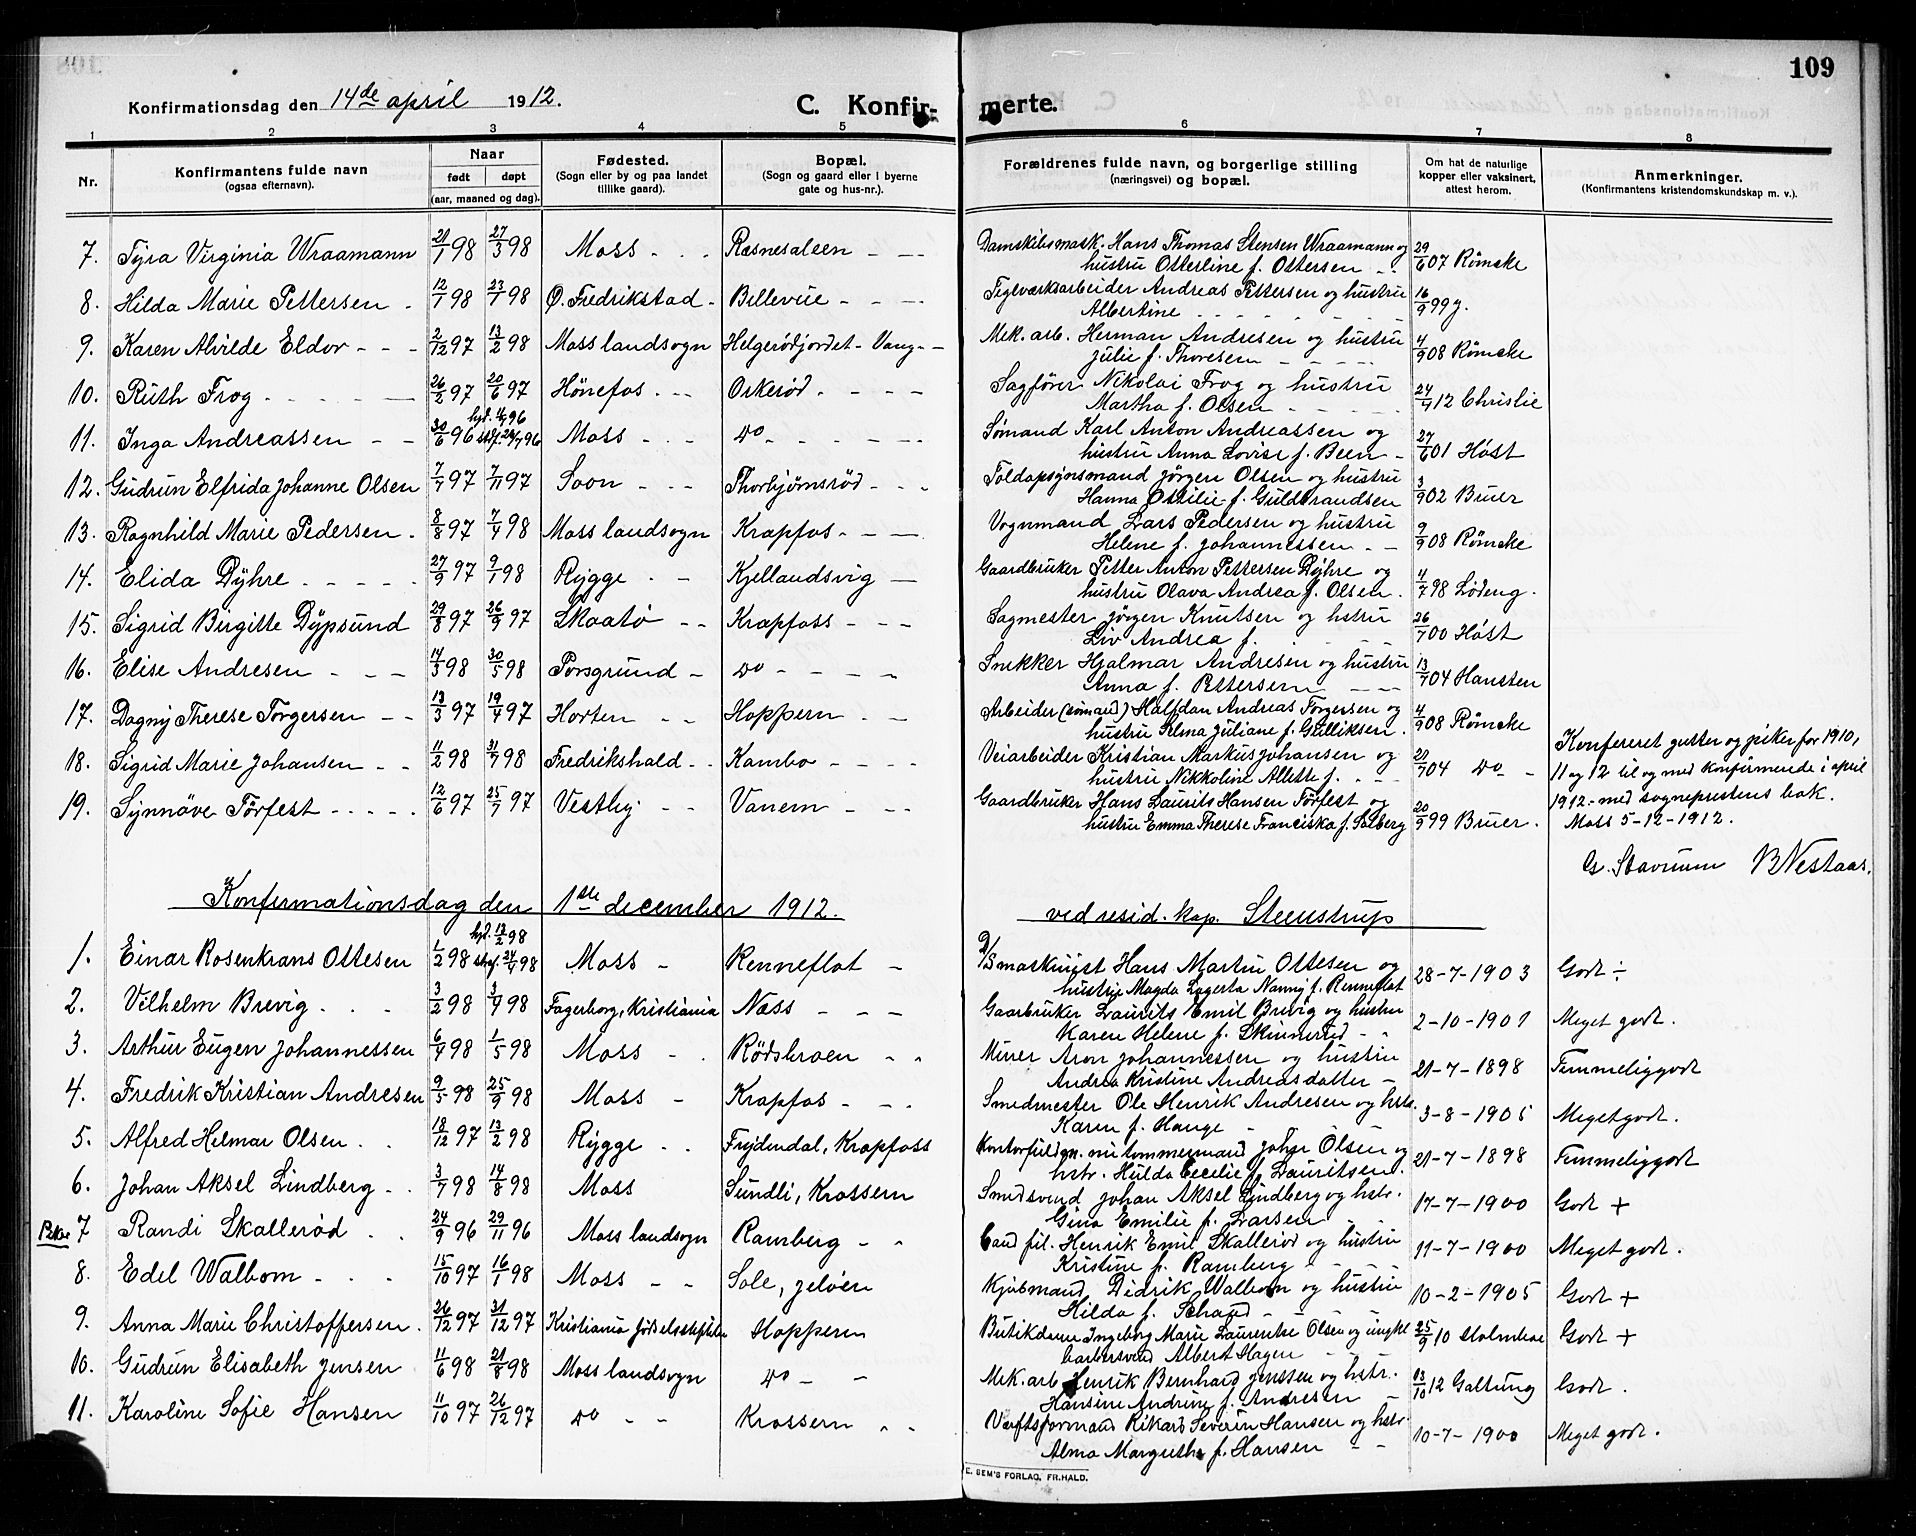 109
Konfirmationsdag den 14de april 1912.
C. Konfirmerte.
1 2 3 4 5 6 7 8
Nr.
Konfirmantens fulde navn
(ogsaa efternavn).
Naar
født døpt
(aar, maaned og dag).
Fødested.
(Sogn eller by og paa landet
tillike gaard).
Bopæl.
(Sogn og gaard eller i byerne
gate og hus-nr.).
Forældrenes fulde navn, og borgerlige stilling
(næringsvei) og bopæl.
Om hat de naturlige
kopper eller vaksinert,
attest herom.
Anmerkninger.
(Konfirmantens kristendomskundskap m. v.).
7. Tyra Virginia Wraamann 21/1 98 27/3 98 Moss Rosnesaleen Damskibsmask. Hans Thomas Stensen Wraamann og
hustru Otterline f. Ottersen 29/6 07 Römcke
8. Hilda Marie Pettersen 12/1 98 23/1 98 Ø. Fredrikstad Bellevue Teglverksarbeider Andreas Pettersen og hustru
Albertine 16/9 99 g.
9. Karen Alvilde Eldor 2/12 97 13/2 98 Moss landsogn Helgerödjordet - Vang Mek. arb. Herman Andresen og hustru
Julie f. Thoresen 4/9 08 Römcke
10. Ruth Frog 26/2 97 20/6 97 Hönefos Orkeröd Sagförer Nikolai Frog og hustru
Martha f. Olsen 24/4 12 Christie
11. Inga Andreassen 30/6 96 hjd. 4/7 96 stadf. 26/7 96 Moss do Sömand Karl Anton Andreassen og
hustru Anna Lovise f. Been 27/6 01 Höst
12. Gudrun Elfrida Johanne Olsen 7/7 97 7/11 97 Soon Thorbjörnsröd Toldopsynsmand Jörgen Olsen og hustru
Hanna Ottilie f. Guldbrandsen 3/9 02 Bruer
13. Ragnhild Marie Pedersen 8/8 97 7/4 98 Moss landsogn Krapfos Vognmand Lars Pedersen og hustru
Helene f. Johannessen 9/9 08 Römcke
14. Elida Dyhre 27/9 97 9/1 98 Rygge Kjellandsvig Gaardbruker Petter Anton Pettersen Dyhre og
hustru Olava Andrea f. Olsen 4/7 98 Lödeng
15. Sigrid Birgitte Dypsund 29/8 97 26/9 97 Skaatö Krapfoss Sagmester Jörgen Knutsen og hstru
Liv Andrea f. 26/7 00 Höst
16. Elise Andresen 14/3 98 30/5 98 Porsgrund do Snekker Hjalmar Andresen og hustru
Anna f. Pettersen 13/7 04 Hansten
17. Dagny Therese Torgersen 13/3 97 19/4 97 Horten Hoppern Arbeider (sömand) Halfdan Andreas Torgersen og
hustru Selma Juliane f. Gulliksen 4/9 08 Römcke
18. Sigrid Marie Johansen 11/2 98 31/7 98 Fredrikshald Kambo Veiarbeider Kristian Markus Johansen og
hustru Nikkoline Allette f. 21/7 04 do
19. Synnöve Torfest 12/6 97 25/7 97 Vestby Vanem Gaardbruker Hans Laurits Hansen Torfest og
hustru Emma Therese Franciska f. Solberg 20/9 99 Bruer
Konfereret gutter og piker for 1910,
11 og 12 til og med konfirmerede i april
1912 - med sogneprestens bok.
Moss 5-12-1912.
G. Stavrum B Nestaas.
Konfirmationsdag den 1ste december 1912. ved resid. kap. Steenstrup
1. Einar Rosenkrans Ottesen 1/2 98 hjd. 13/2 98 stadf. 24/4 98 Moss Renneflot D/S maskinist Hans Martin Ottesen og
hustru Magda Lagerta Nanny f. Renneflot 28-7-1903 Godt ÷
2. Vilhelm Brevig 3/2 98 3/4 98 Fagerborg, Kristiania Næss Gaarbruker Laurits Emil Brevig og hustru
Karen Helene f. Skinnerud 2-10-1901 Meget godt.
3. Arthur Eugen Johannessen 6/4 98 1/5 98 Moss Rödskroen Murer Aron Johannessen og hustru
Andrea Kristine Andreasdatter 21-7-1898 Temmeliggodt
4. Fredrik Kristian Andresen 9/5 98 25/9 98 Moss Krapfos Smedmester Ole Henrik Andresen og hstr.
Karen f. Hauge 3-8-1905 Megetgodt.
5. Alfred Helmar Olsen 18/12 97 13/2 98 Rygge Frydendal, Krapfoss Kontorfuldm. nu tommermand Johan Olsen og
hstr. Hulda Cecelie f. Lauritsen. 21-7-1898 Temmeliggodt
6. Johan Aksel Lindberg 3/7 98 14/8 98 Moss Sundli, Krossern Smedsvend Johan Aksel Lindberg og hstr.
Gina Emilie f. Larsen 17-7-1900 Godt +
Piker 7 Randi Skalleröd 24/9 96 29/11 96 Moss landsogn Ramberg Cand fil. Henrik Emil Skalleröd og hustru
Kristine f. Ramberg 11-7-1900 Meget godt.
8. Edel Walbom 15/10 97 16/1 98 Moss Sole, Jelöen Kjöbmand Didrik Walbom og hustru
Hilda f. Schand 10-2-1905 Godt +
9. Anna Marie Christoffersen 26/12 97 31/12 97 Kristiania födselsstiftelse Hoppern Butikdame Ingeborg Marie Laurentse Olsen og ungkl
barbersvend Albert Hagen 25/9 10 Holmboe Godt +
10. Gudrun Elisabeth Jensen 11/6 98 21/8 98 Moss landsogn do Mek. arb Henrik Bernhard Jenssen og hstr.
Hansine Andrine f. Andresen 13/10 12 Galtung Godt.
11. Karoline Sofie Hansen 11/10 97 26/12 97 do Krossern Værftsformand Rikard Severin Hansen og hstr.
Alma Margrethe f. Hansen 10-7-1900 Meget godt.
E. SEM'S FORLAG, FR.HALD.